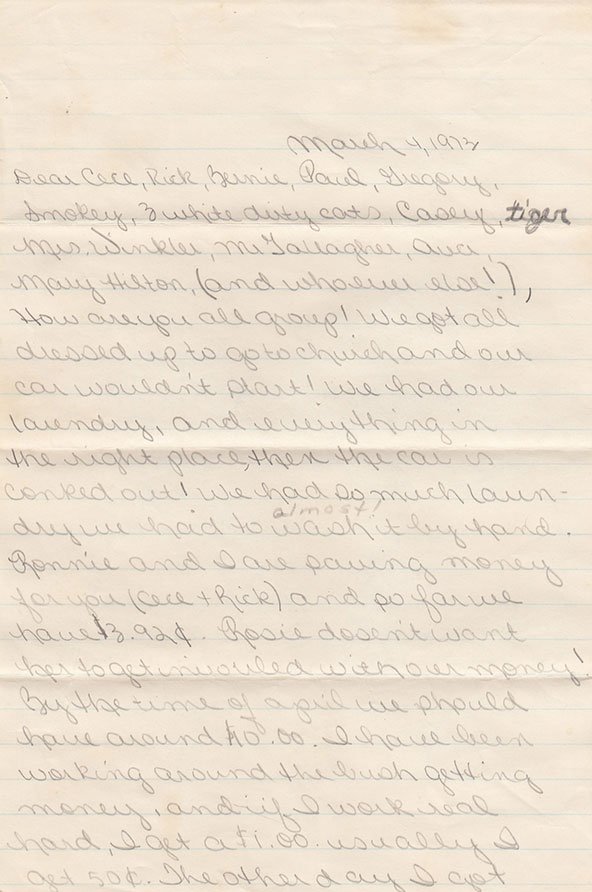 March 4, 1973
Dear Cece, Rick, Bernie, Paul, Gregory,
Smokey, 3 white dirty cats, Casey, tiger
Mrs. Winkler, Mr Gallagher, Ava,
Mary Hilton, (and whoever else!),
How are you all group! We got all
dressed up to go to church and our
car wouldn't start! We had our
laundry, and everything in
the right place, then the car is
conked out! We had so much laun-
almost!
dry we had to wash it by hand.
Ronnie and I are saving money
for you (Cece + Rick) and so far we
have $3.92¢. Rosie dosen't want
her to get invouled with our money!
By the time of april we should
have around $10.00. I have been
working around the bush getting
money, and if I work real
hard, I get a $1.00. usually I
get 50¢. The other day I got